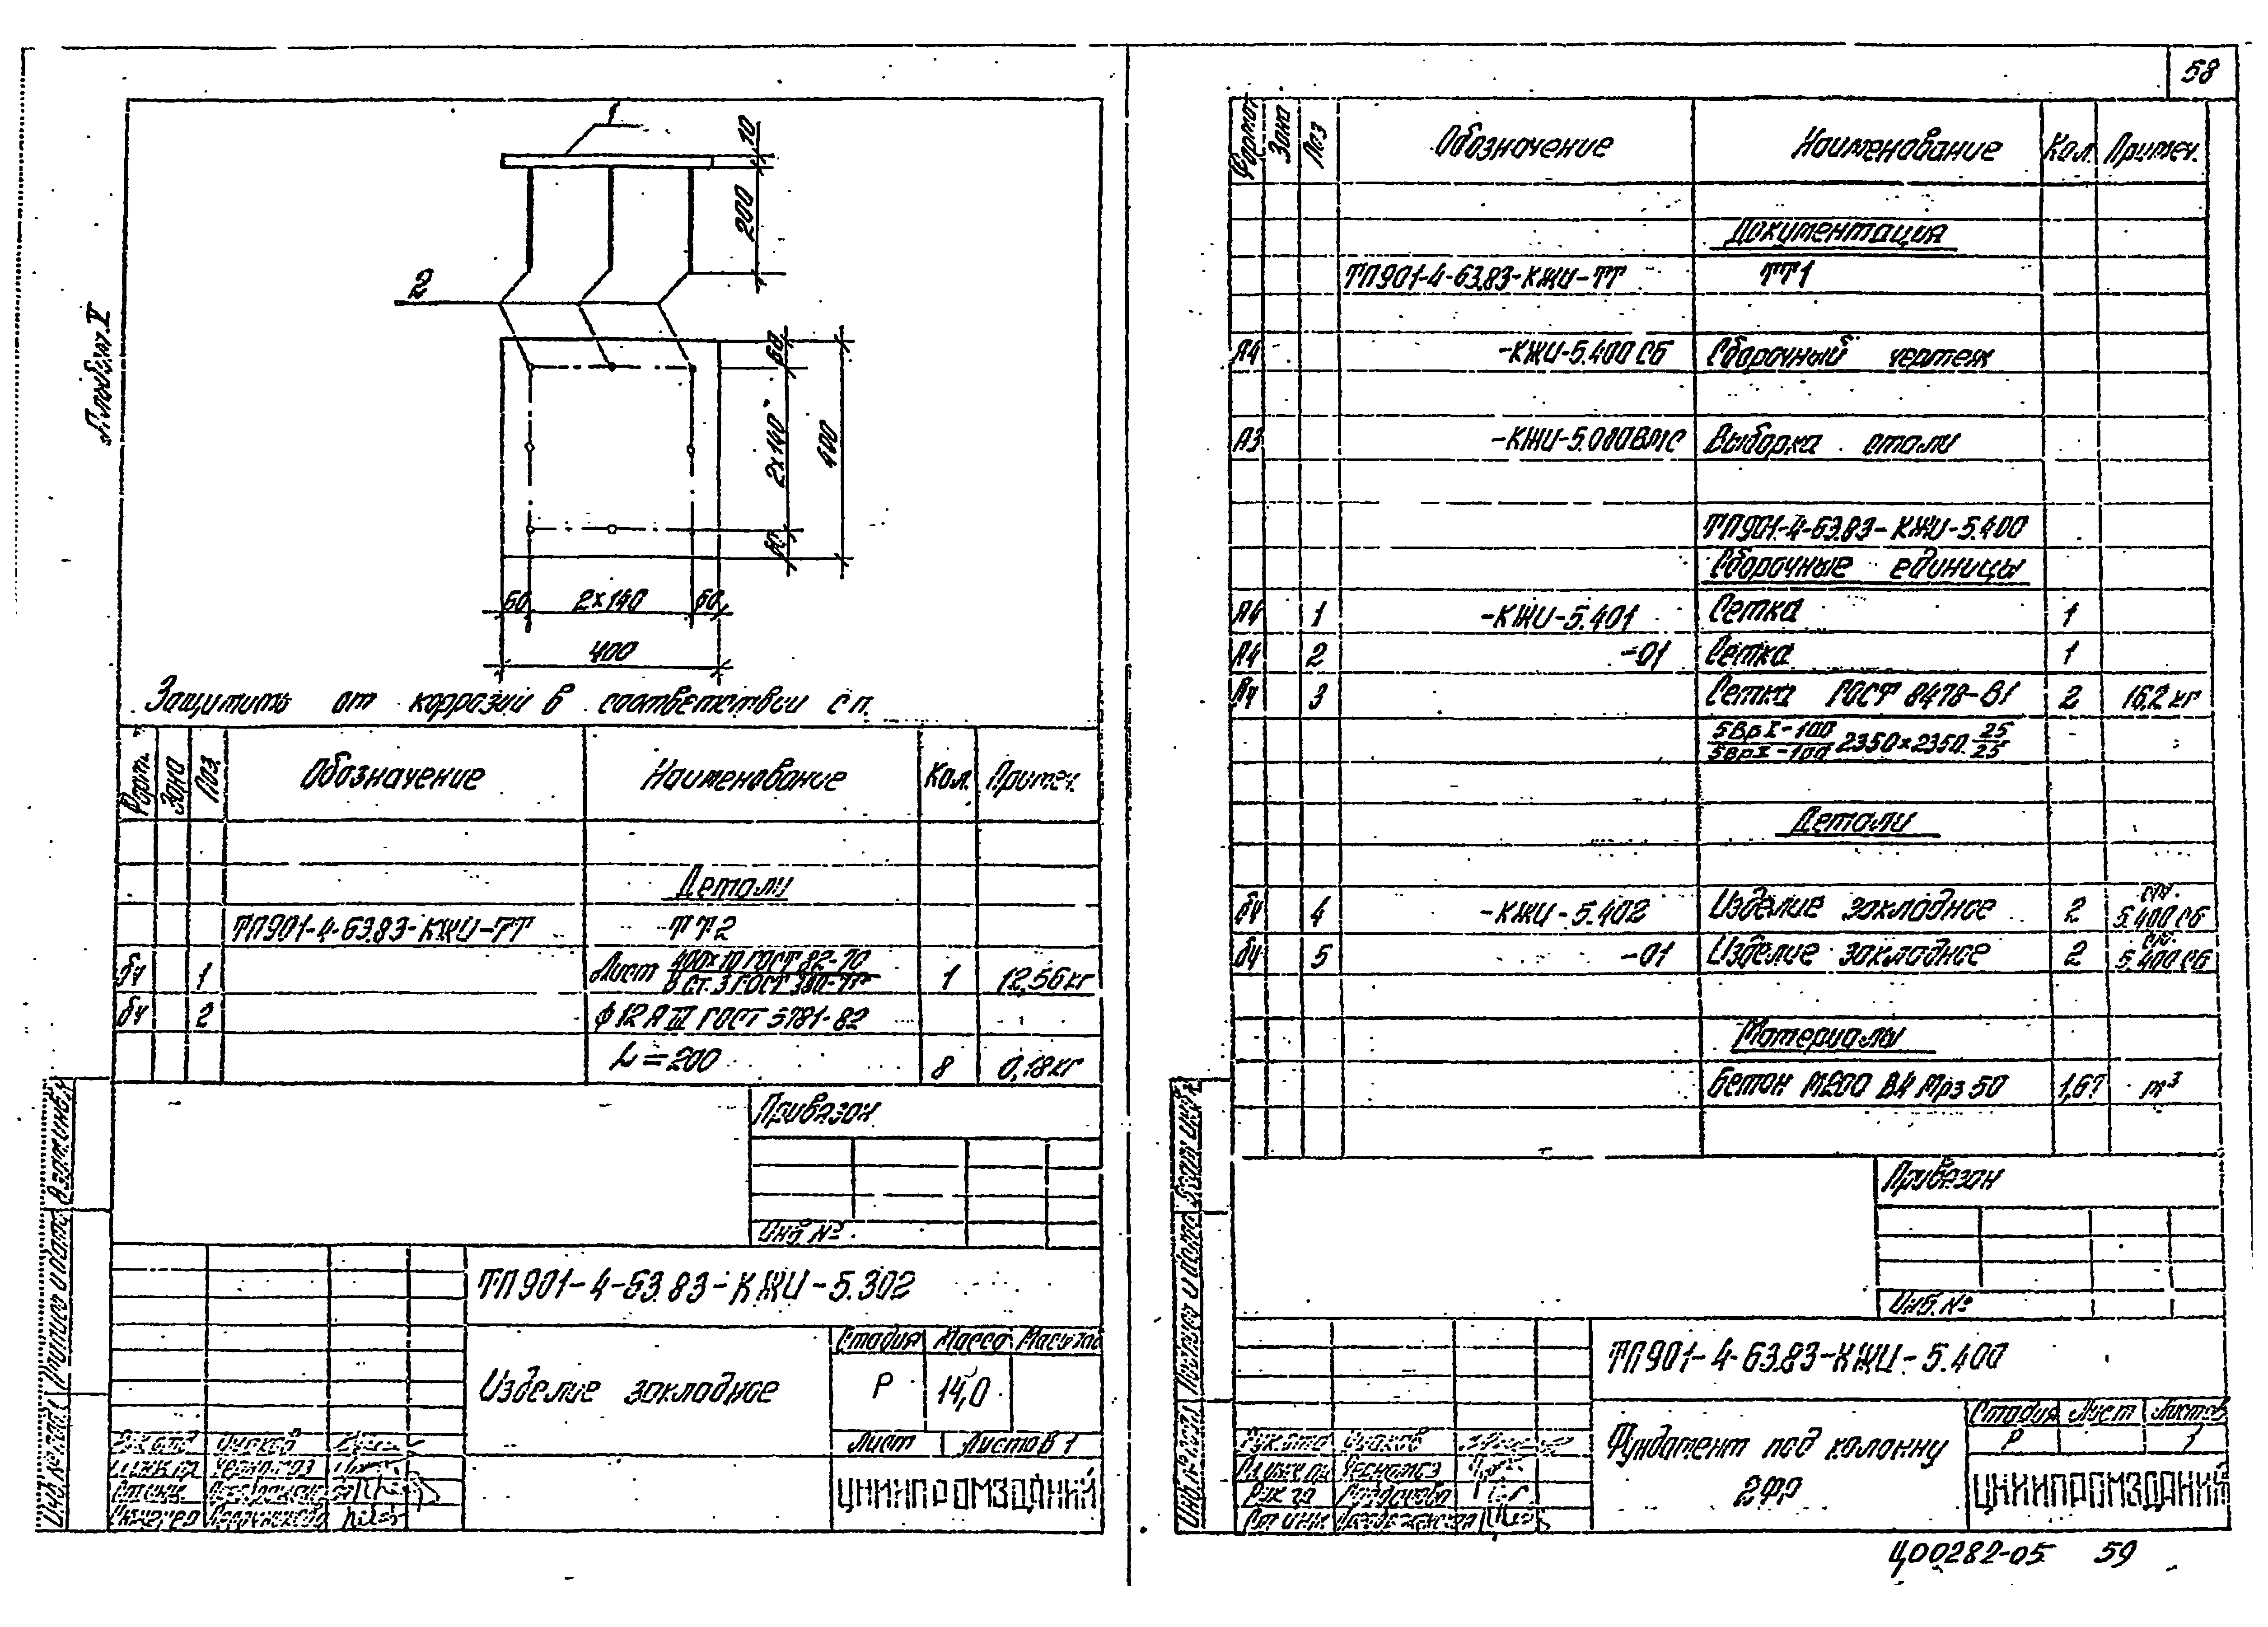 58
Альбом V
1
10
200
2
60
2×140
400
60
60
2×140
60
400
Защитить от коррозии в соответствии с п.
Форм. Зона Поз. Обозначение Наименование Кол. Примеч.
Детали
ТП901-4-63.83-КЖИ-ТТ ТТ2
бч 1 Лист 400×10 ГОСТ 82-70 / В ст. 3 ГОСТ 380-71* 1 12,56 кг
бч 2 ф12 А III ГОСТ 5781-82
L=200 8 0,18 кг
Привязан
Инв. №
ТП901-4-63.83-КЖИ-5.302
Изделие закладное
Стадия Масса Масштаб
Р 14,0
Лист Листов 1
ЦНИИПРОМЗДАНИЙ
Инв. № подл. Подпись и дата Взам. инв. №
Формат Зона Поз Обозначение Наименование Кол. Примеч.
Документация
ТП901-4-63.83-КЖИ-ТТ ТТ1
А4 -КЖИ-5.400 СБ Сборочный чертеж
А3 -КЖИ-5.000ВМС Выборка стали
ТП901-4-63.83-КЖИ-5.400
Сборочные единицы
А4 1 -КЖИ-5.401 Сетка 1
А4 2 -01 Сетка 1
А4 3 Сетка ГОСТ 8478-81 2 16,2 кг
5ВрI-100 / 5ВрI-100 2350×2350 25/25
Детали
бч 4 -КЖИ-5.402 Изделие закладное 2 см. 5.400 СБ
бч 5 -01 Изделие закладное 2 см. 5.400 СБ
Материалы
Бетон М200 В4 Мрз 50 1,67 m³
Привязан
Инв. №
ТП901-4-63.83-КЖИ-5.400
Фундамент под колонну
2ФР
Стадия Лист Листов
Р 1
ЦНИИПРОМЗДАНИЙ
Инв. № подл. Подпись и дата Взам. инв. №
Ц00282-05 59